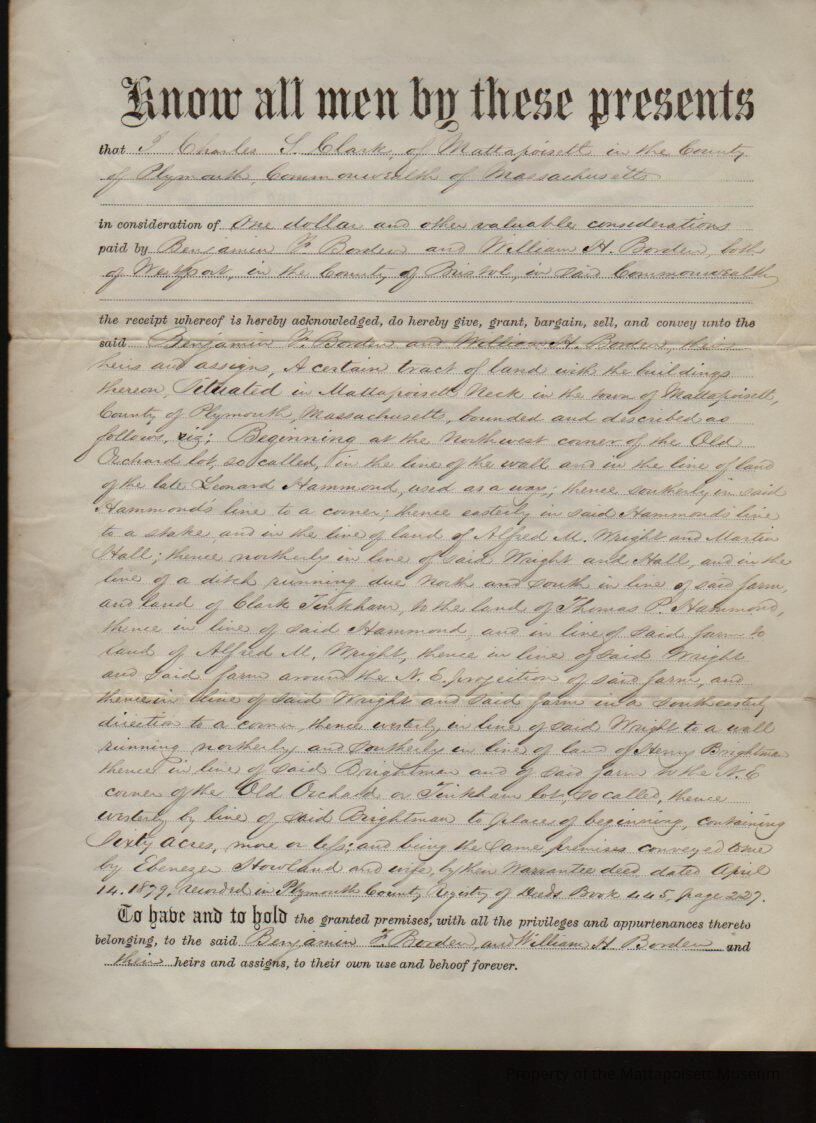 Know all men by these presents
that I Charles S. Clark, of Mattapoisett in the County
of Plymouth, Commonwealth of Massachusetts
in consideration of One dollar and other valuable considerations
paid by Benjamin F. Borden and William H. Borden, both
of Westport, in the County of Bristol, in said Commonwealth,
the receipt whereof is hereby acknowledged, do hereby give, grant, bargain, sell, and convey unto the
said Benjamin F. Borden and William H. Borden, their
heirs and assigns, A certain tract of land with the buildings
thereon, Situated in Mattapoisett Neck in the town of Mattapoisett,
County of Plymouth, Massachusetts, bounded and described as
follows, viz; Beginning at the Northwest corner of the Old
Orchard lot, so called, in the line of the wall and in the line of land
of the late Leonard Hammond, used as a way; thence southerly in said
Hammond's line to a corner; thence easterly in said Hammond's line
to a stake and in the line of land of Alfred M. Wright and Martin
Hall; thence northerly in line of said Wright and Hall, and in the
line of a ditch running due North and South in line of said farm,
and land of Clark Tinkham, to the land of Thomas P. Hammond,
thence in line of said Hammond, and in line of said farm to
land of Alfred M. Wright, thence in line of said Wright
and said farm around the N.E. projection of said farm, and
thence in line of said Wright and said farm in a southeasterly
direction to a corner, thence westerly in line of said Wright to a wall
running northerly and southerly in line of land of Henry Brightman
thence in line of said Brightman and of said farm to the N.E
corner of the Old Orchard or Tinkham lot, so called, thence
westerly by line of said Brightman to place of beginning, containing
Sixty acres, more or less; and being the same premises conveyed to me
by Ebenezer Howland and wife, by their Warrantee deed, dated April
14. 1879, recorded in Plymouth County Registry of Deeds Book 445, page 227.
To have and to hold the granted premises, with all the privileges and appurtenances thereto
belonging, to the said Benjamin F. Borden, and William H. Borden and
their heirs and assigns, to their own use and behoof forever.
Property of the Mattapoisett Museum